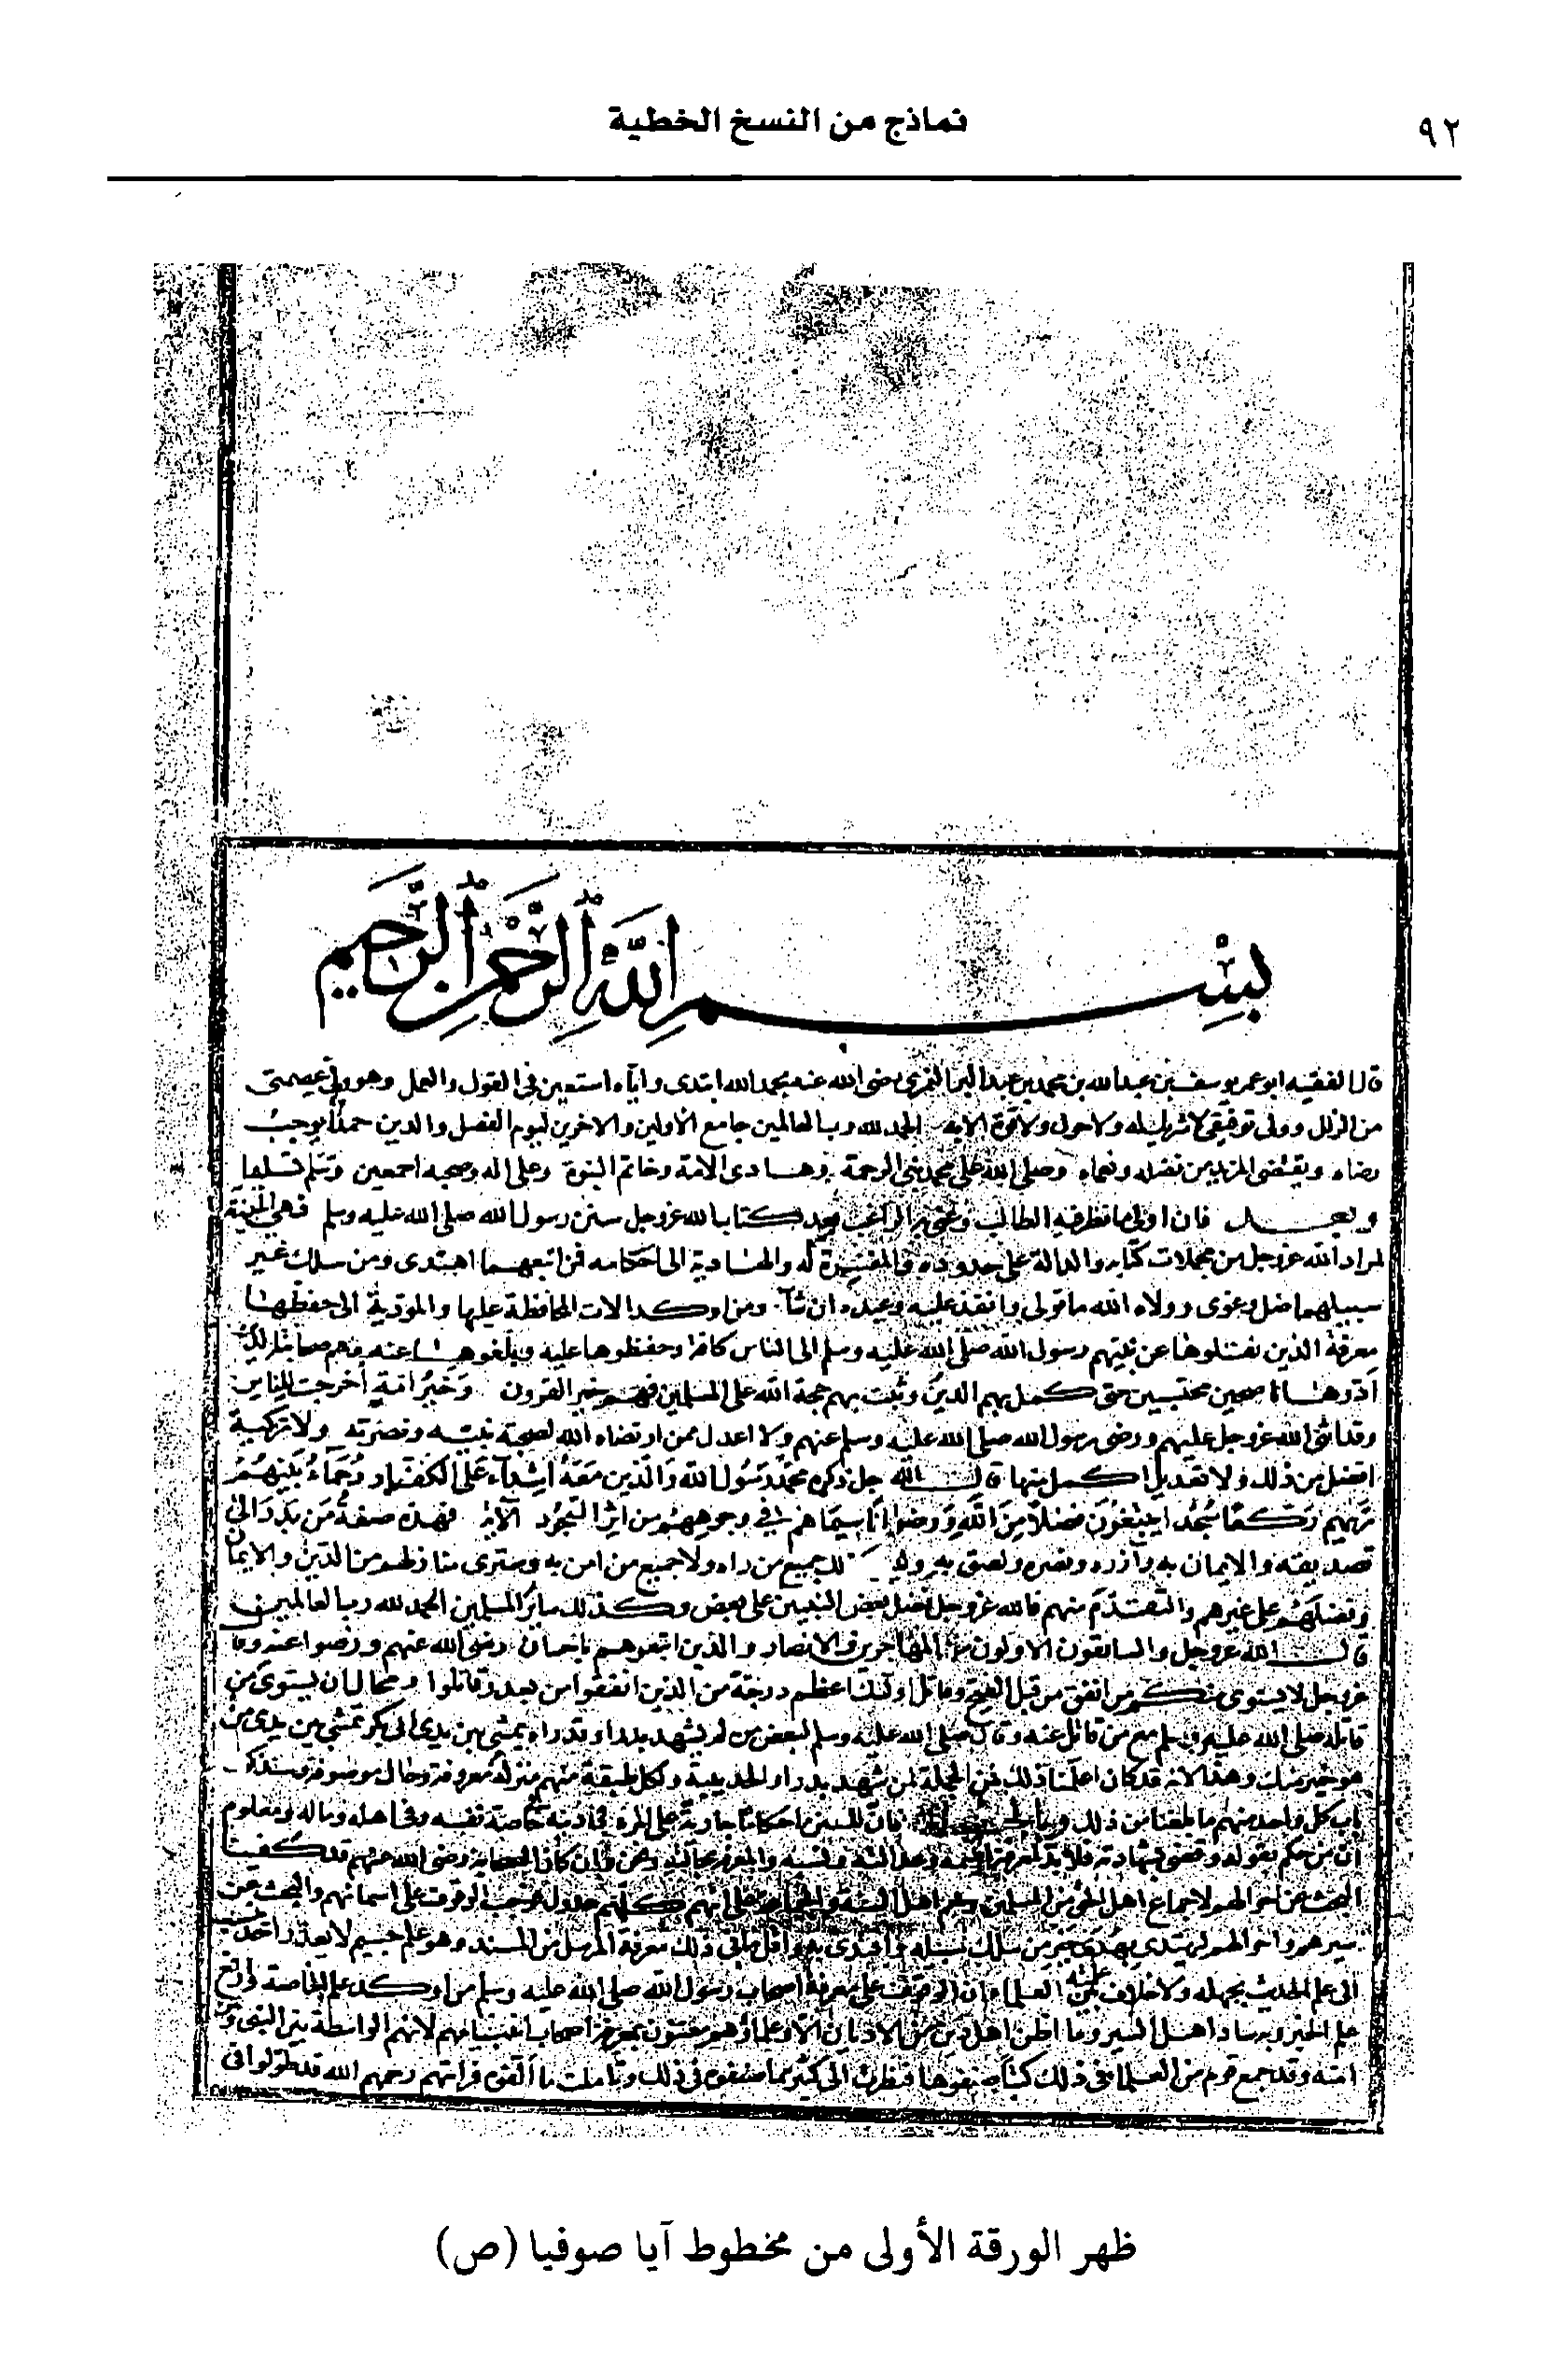 ٩٢
نماذج من النسخ الخطية
بسم الله الرحمن الرحيم
قال الفقيه ابو عمر يوسف بن عبد الله بن محمد بن عبد البر النمري رضى الله عنه بحمد الله ابتدى واياه استعين فى القول والعمل وهو ولى عصمتى
من الزلل وولى توفيقى لا شريك له ولا حول ولا قوة الا به الحمد لله رب العالمين جامع الأولين والاخرين ليوم الفصل والدين حمدا يوجب
رضاه ويقتضى المزيد من فضله ونعماه وصلى الله على محمد نبى الرحمة وهادى الامة وخاتم النبوة وعلى اله وصحبه اجمعين وسلم تسليما
وبعد فان اولى ما نظر فيه الطالب وعنى به الراغب بعد كتاب الله عز وجل سنن رسول الله صلى الله عليه وسلم فهى المبينة
لمراد الله عز وجل من مجملات كتابه والدالة على حدوده والمفسرة له والهادية الى احكامه فمن اتبعهما اهتدى ومن سلك غير
سبيلهما ضل وغوى وولاه الله ما تولى وانفذ عليه وعيده ان شآ ومن اوكد الات المحافظة عليها والمودية الى حفظها
معرفة الذين نقلوها عن نبيهم رسول الله صلى الله عليه وسلم الى الناس كافة وحفظوها عليه وبلغوها عنه وهم صحابته
ناصحين محتسبين حتى كمل بهم الدين وثبت بهم حجة الله على المسلمين فهم خير القرون وخير امة أخرجت للناس
وقد اثنى الله عز وجل عليهم ورضى رسول الله صلى الله عليه وسلم عنهم ولا اعدل ممن ارتضاه الله لصحبة نبيه ونصرته ولا تزكية
افضل من ذلك ولا تعديل اكمل منها قال الله جل ذكره محمد رسول الله والذين معه اشدآء على الكفار رحماء بينهم
تريهم ركعا سجدا يبتغون فضلا من الله ورضوانا سيماهم فى وجوههم من اثر السجود الآية فهذه صفة من بدر الى
تصديقه والايمان به وآزره ونصره ولصق به وليس كذلك جميع من راه ولا جميع من امن به وسترى منازلهم من الدين والايمان
وفضلهم على غيرهم والتقدم منهم فالله عز وجل فضل بعض النبيين على بعض وكذلك سائر المسلمين الحمد لله رب العالمين
قال الله عز وجل والسابقون الاولون من المهاجرين والانصار والذين اتبعوهم باحسان رضى الله عنهم ورضوا عنه وقال
عز وجل لا يستوى منكم من انفق من قبل الفتح وقاتل اولئك اعظم درجة من الذين انفقوا من بعد وقاتلوا ومحال ان يستوى من
قاتله صلى الله عليه وسلم مع من قاتل عنه وقال صلى الله عليه وسلم لبعض من لم يشهد بدرا وقد راه يمشى بين يدى ابى بكر تمشى بين يدى من
هو خير منك وهذا لانه قد كان اعلمنا ذلك فى الجملة لمن شهد بدرا والحديبية ولكل طبقة منهم منزلة معروفة وحال موصوفة وسنذكر
باب كل واحد منهم ما بلغنا من ذلك فان للسنن احكاما جارية على المرء فى دينه خاصة نفسه وفى اهله وماله ومعلوم
أن من حكم بقوله وقضى بشهادته فلا بد لمعرفة اسمه ونسبه والمعرفة بحاله ونحن وان كان الصحابة رضى الله عنهم قد كفينا
البحث عن احوالهم لاجماع اهل الحق من المسلمين وهم اهل السنة والجماعة على انهم كلهم عدول فواجب الوقوف على اسمائهم والبحث عن
سيرهم واحوالهم ليهتدى بهديهم فهم خير من سلك سبيله واقتدى به واقل ما فى ذلك معرفة المرسل من المسند وهو علم جسيم لا يعذر احد ينسب
الى علم الحديث بجهله ولا خلاف علمته بين العلماء ان الوقوف على معرفة اصحاب رسول الله صلى الله عليه وسلم من اوكد علم الخاصة وارفع
علم الخبر وبه ساد اهل السير وما اظن اهل دين من الاديان الا وعلماؤهم معتنون بمعرفة اصحاب انبيائهم لانهم الواسطة بين النبى وبين
امته وقد جمع قوم من العلماء فى ذلك كتبا صنفوها فنظرت الى كثير مما صنفوه فى ذلك وتاملت ما ألفوه فرايتهم رحمهم الله قد طولوا فى
ظهر الورقة الأولى من مخطوط آيا صوفيا (ص)